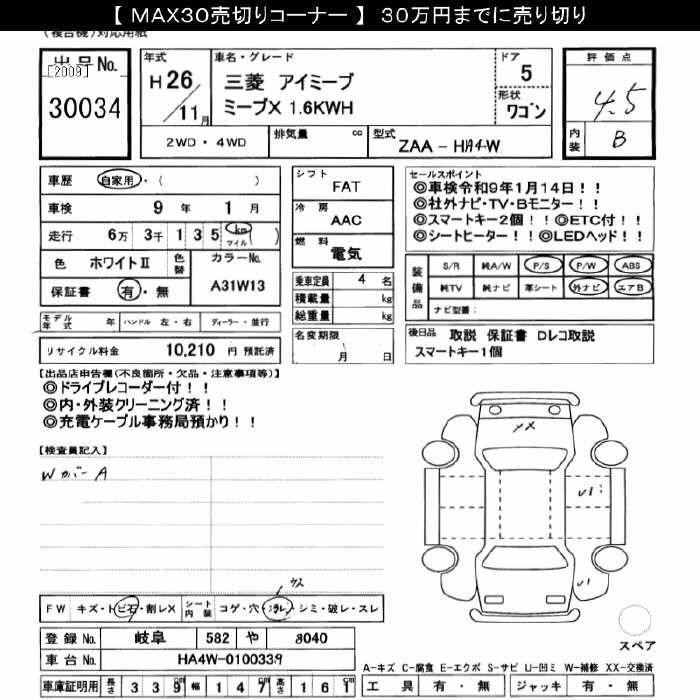 【 MAX30売切りコーナー 】 30万円までに売り切り
(複合機)対応用紙
出品No.
[2009]
30034
年式
H 26 / 11 月
車名・グレード
三菱 アイミーブ
ミーブX 1.6KWH
ドア
5
形状
ワゴン
評価点
4.5
内装
B
2WD ・ 4WD
排気量 cc
型式 ZAA - HA4W
車歴 自家用 ・ ( )
車検 9 年 1 月
走行 6万 3千 1 3 5 km マイル ( )
色 ホワイトⅡ 色替 カラーNo.
A31W13
保証書 有 ・ 無
モデル年式 年 ハンドル 左・右 ディーラー・並行
リサイクル料金 10,210 円 預託済
シフト
FAT
冷房
AAC
燃料
電気
乗車定員 4 名
積載量 kg
総重量 kg
名変期限
月 日
セールスポイント
◎車検令和9年1月14日！！
◎社外ナビ・TV・Bモニター！！
◎スマートキー2個！！◎ETC付！！
◎シートヒーター！！◎LEDヘッド！！
装備品
S/R 純A/W P/S P/W ABS
純TV 純ナビ 革シート 外ナビ エアB
ナビ型番:
後日品 取説 保証書 Dレコ取説
スマートキー1個
【出品店申告欄(不良箇所・欠品・注意事項等)】
◎ドライブレコーダー付！！
◎内・外装クリーニング済！！
◎充電ケーブル事務局預かり！！
【検査員記入】
Wカバー A
XX
ウス
FW キズ・トビ石・割レX シート内装 コゲ・穴・ヨゴレ・シミ・破レ・スレ
登録No. 岐阜 582 や 8040
車台No. HA4W-0100339
車庫証明用 長さ 3 3 9 cm 幅 1 4 7 cm 高さ 1 6 1 cm
スペア
A-キズ C-腐食 E-エクボ S-サビ U-凹ミ W-補修 XX-交換済
工具 有 ・ 無 ジャッキ 有 ・ 無